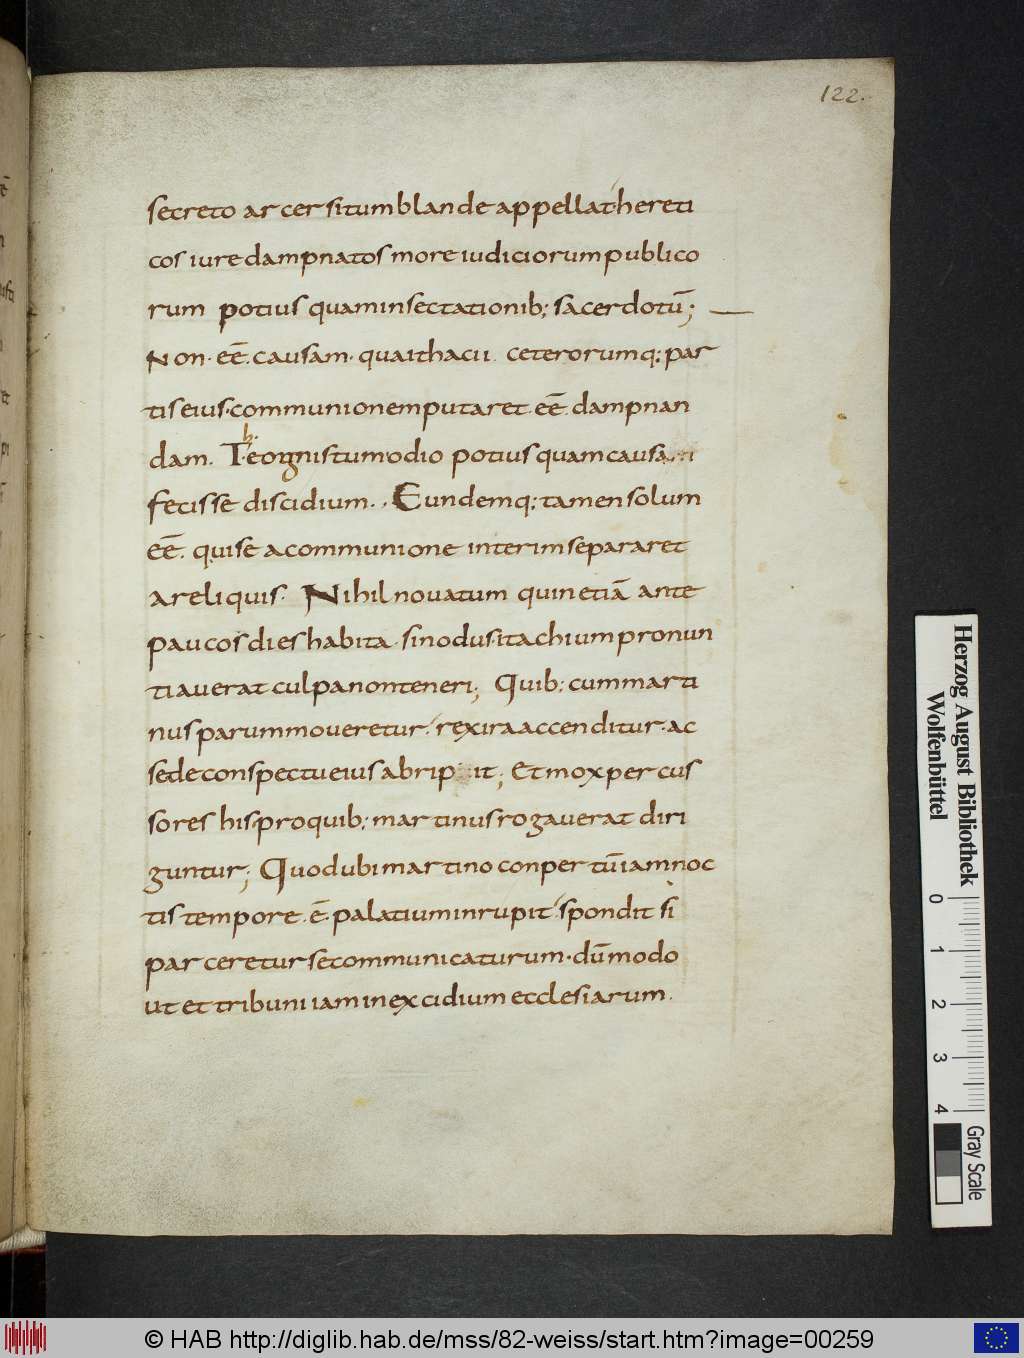 122.
secreto arcersitum blande appellat hereti
cos iure dampnatos more iudiciorum publico
rum potius quam insectationib; sacerdotū;
Non eē causam quaithacii ceterorumq; par
tis eius communionem putaret eē dampnan
dam. Theognistum odio potius quam causam
fecisse discidium. Eundemq; tamen solum
eē. qui se a communione interim separaret
a reliquis. Nihil novatum quin etiā ante
paucos dies habita sinodus itachium pronun
tiaverat culpa non teneri; Quib; cum marti
nus parum moveretur rex ira accenditur ac
se de conspectu eius abripit; Et mox percus
sores his pro quib; martinus rogaverat diri
guntur; Quod ubi martino conpertū iam noc
tis tempore ē palatium inrupit spondit si
parceretur se communicaturum dūmodo
ut et tribuni iam in excidium ecclesiarum
Herzog August Bibliothek
Wolfenbüttel
0 1 2 3 4
Gray Scale
© HAB http://diglib.hab.de/mss/82-weiss/start.htm?image=00259